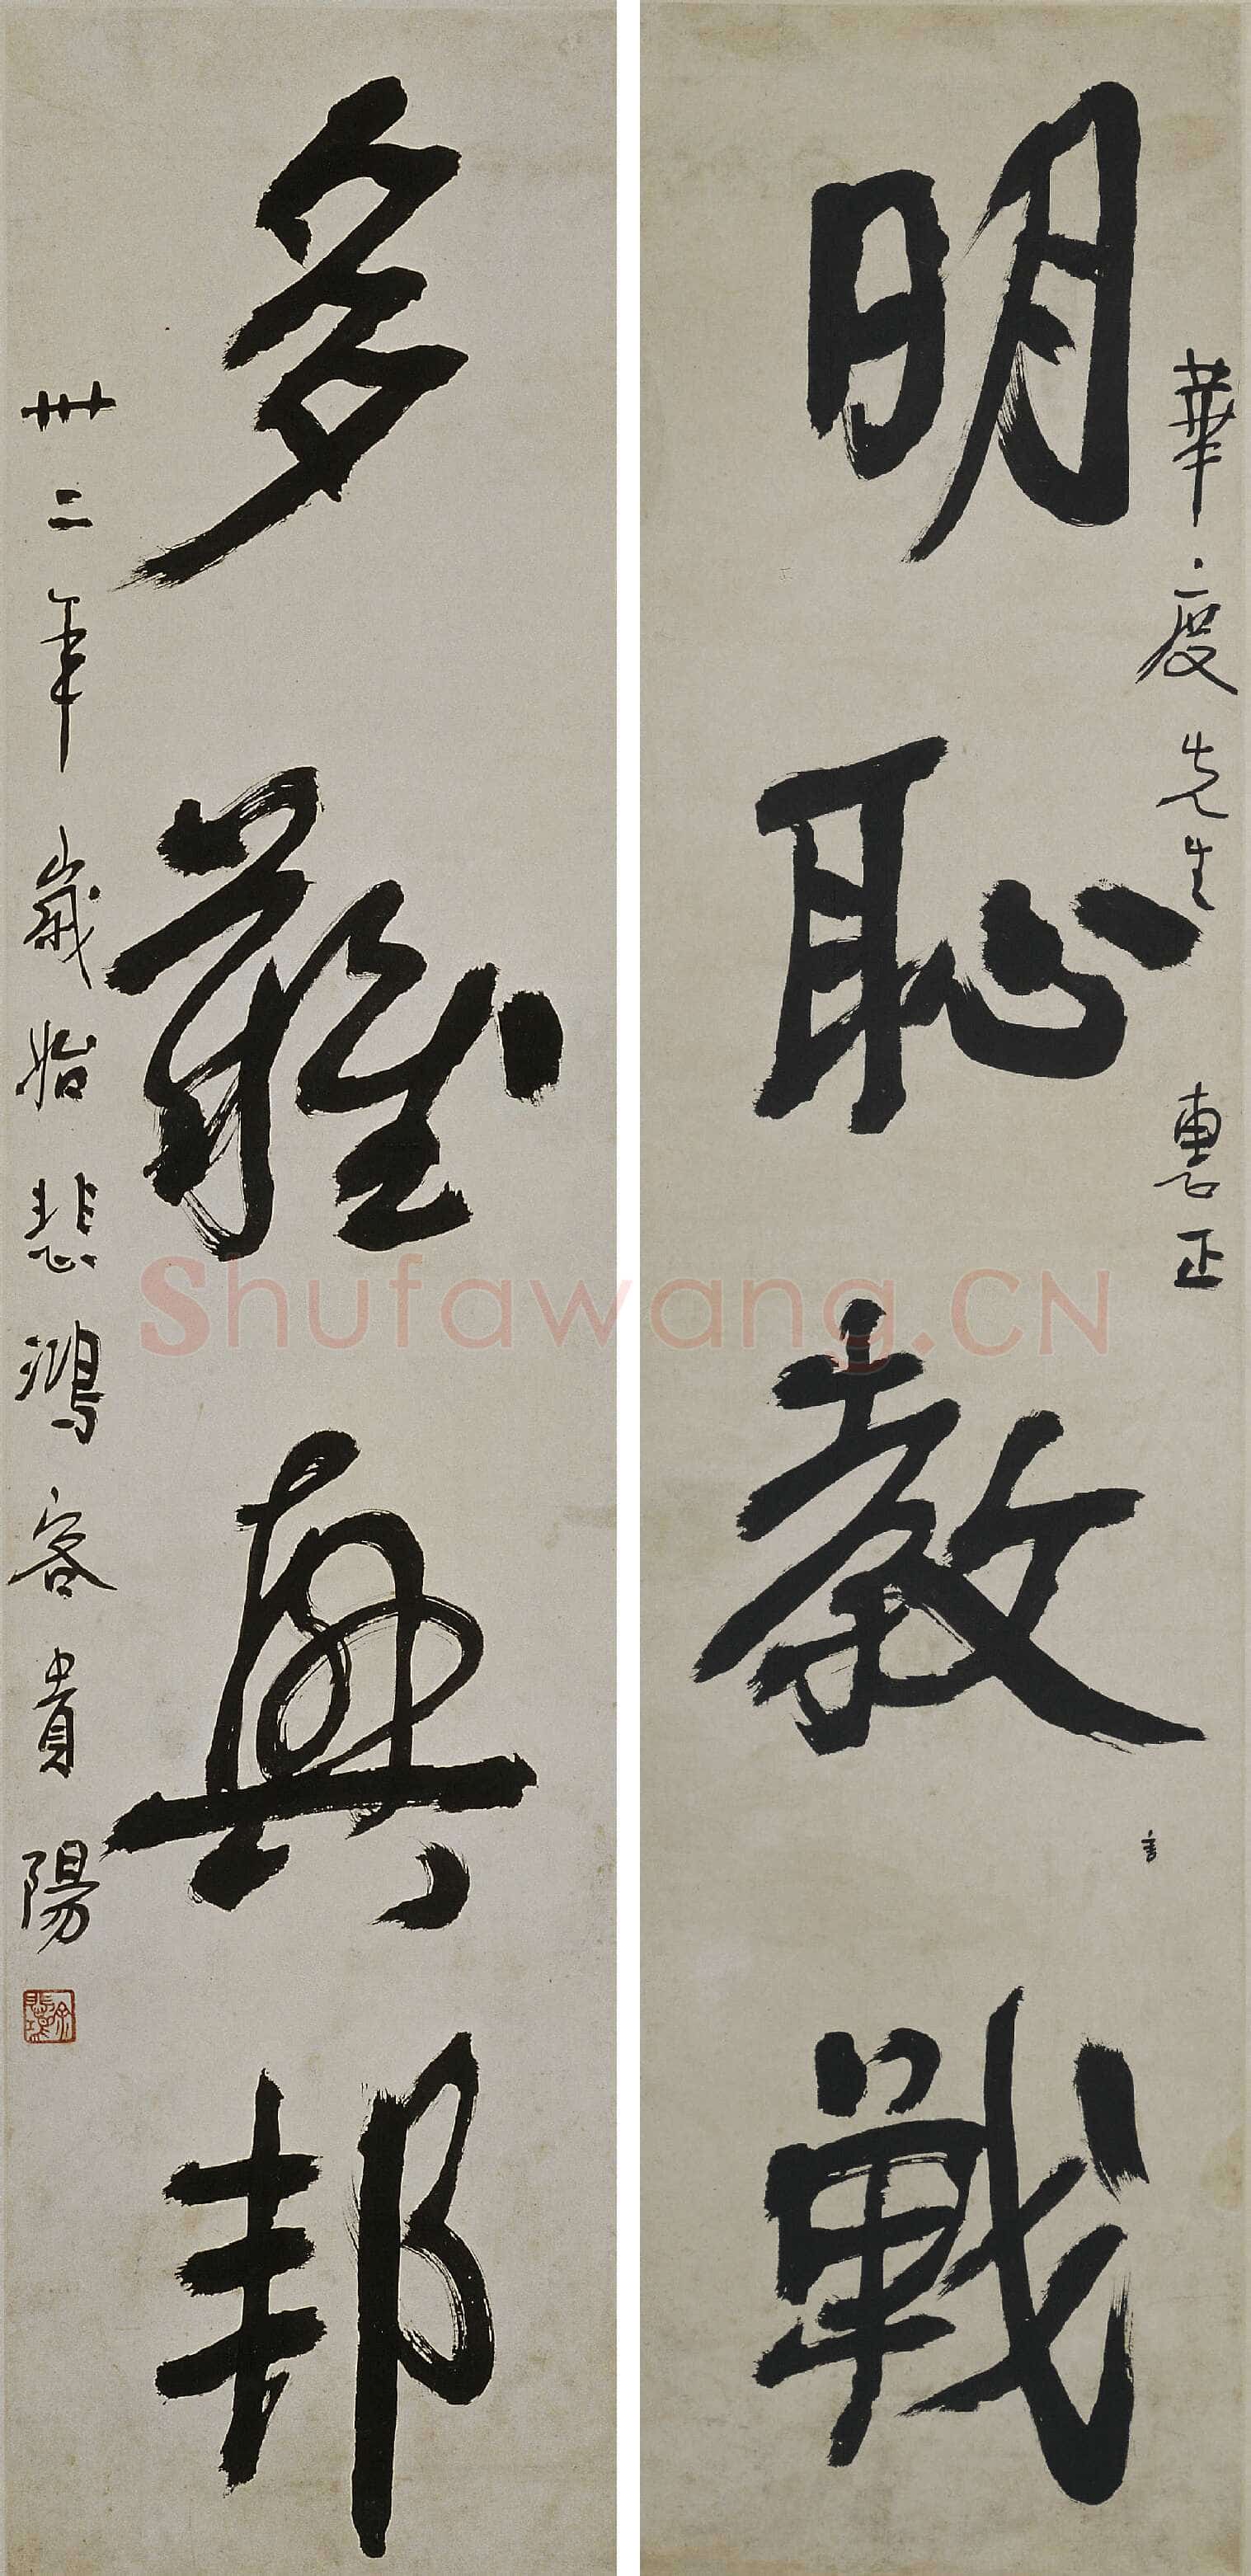 華度先生 惠正
明恥教戰
言
多難興邦
卅二年歲始悲鴻客貴陽
徐悲鴻
Shufawang.CN